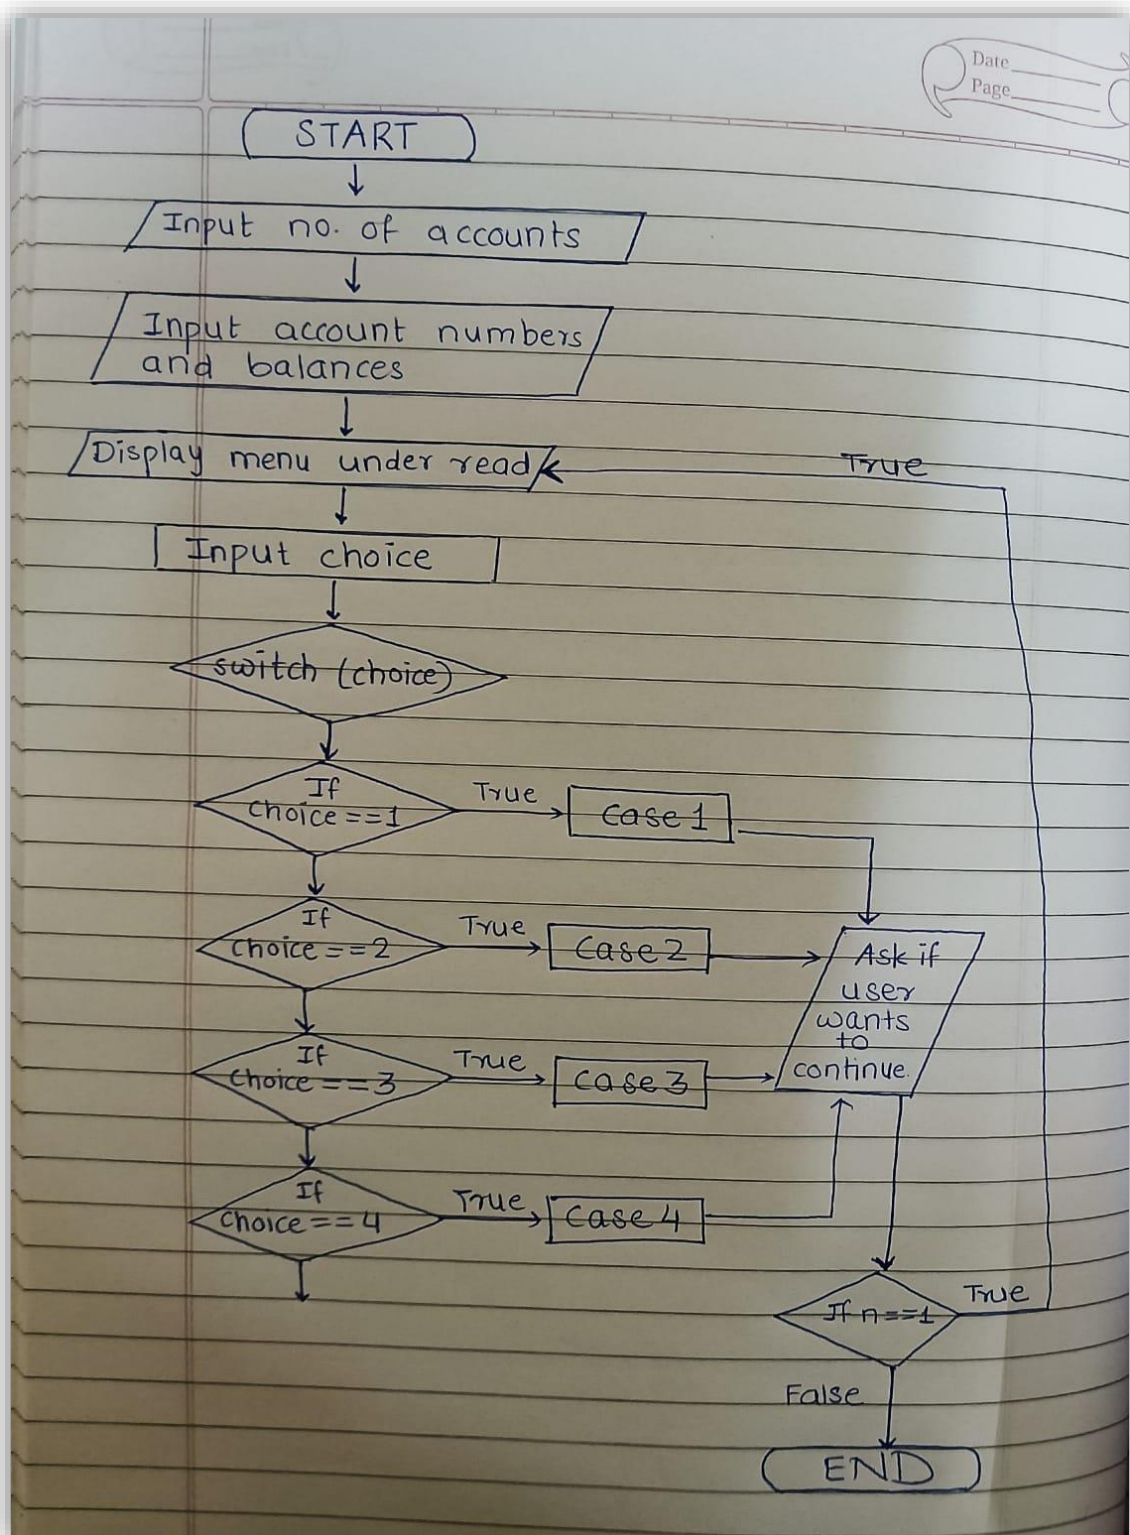 Date
Page
START
Input no. of accounts
Input account numbers
and balances
Display menu under read
True
Input choice
switch (choice)
If
choice == 1
True
case 1
If
choice == 2
True
case 2
Ask if
user
wants
to
continue.
If
choice == 3
True
case 3
If
choice == 4
True
case 4
If n==1
True
False
END